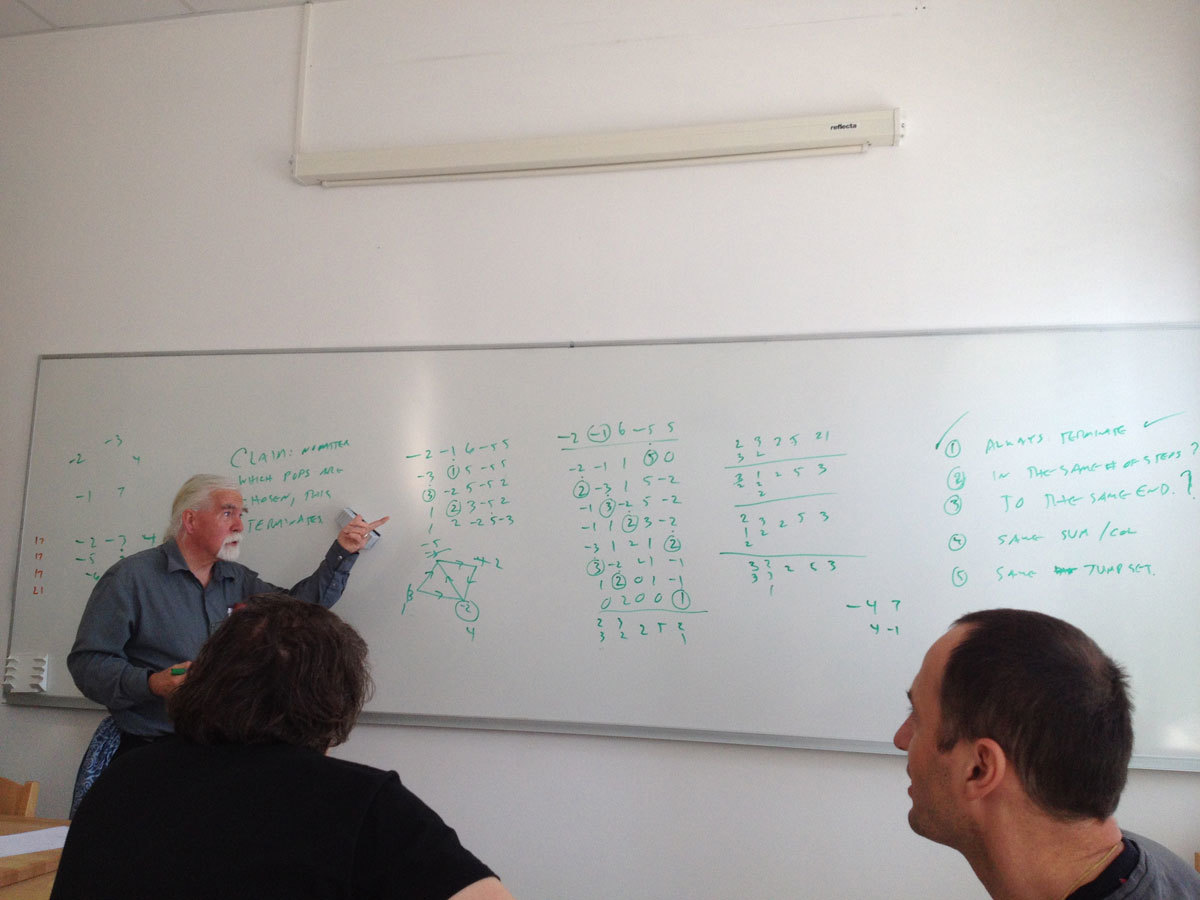 reflecta
-3
-2 4
-1 7
17 -2 -3 4
17 -5
17 -6
21
CLAIM: NO MATTER
WHICH POPS ARE
CHOSEN, THIS
TERMINATES
-2 -1 6 -5 5
-3 1 5 -5 5
3 -2 5 -5 2
1 2 3 -5 2
1 2 -2 5 -3
-5
-2
4
-2 -1 6 -5 5
-2 -1 1 5 0
2 -3 1 5 -2
-1 3 -2 5 -2
-1 1 2 3 -2
-3 1 2 1 2
3 -2 2 1 -1
1 2 0 1 -1
0 2 0 0 1
2 3 2 5 2
3 2 1
2 3 2 5 21
3 2
3 1 2 5 3
2 2
2
2 3 2 5 3
1 2
2
3 2 2 5 3
3 2
1
1 ALWAYS TERMINATE ✓
2 IN THE SAME # OF STEPS ?
3 TO THE SAME END. ?
4 SAME SUM/COL
5 SAME JUMP SET.
-4 7
4 -1